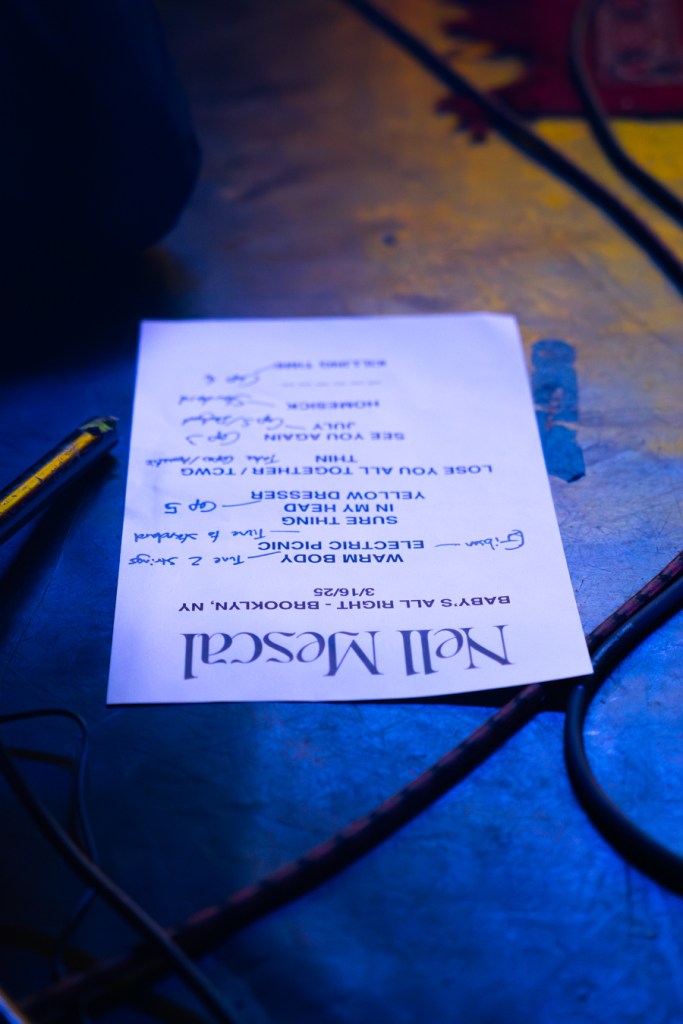 Nell Mescal
BABY'S ALL RIGHT - BROOKLYN, NY
3/16/25
WARM BODY — Tune 2 strings
Gibson — ELECTRIC PICNIC — Tune to standard
SURE THING
IN MY HEAD — Cap 5
YELLOW DRESSER
LOSE YOU ALL TOGETHER / TCWG
THIN Take Capo
SEE YOU AGAIN Cap 2
JULY — Cap 5 / standard
HOMESICK — standard
— — — — — —
KILLING TIME — Cap 6